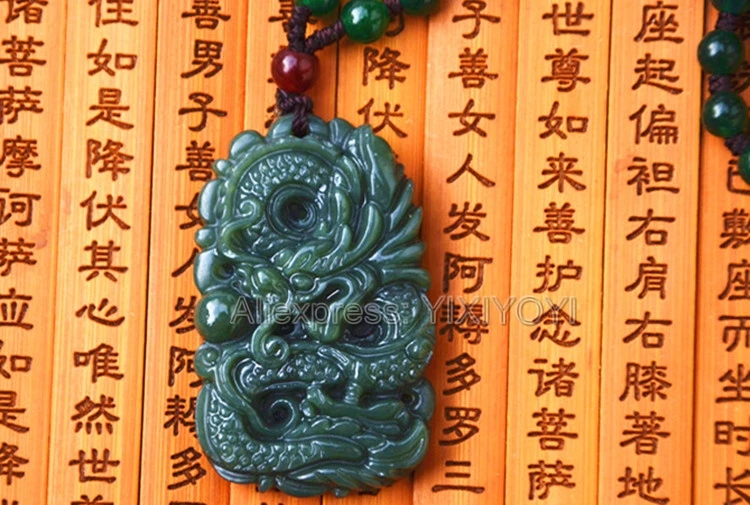 巴敷座而坐时长
座起偏袒右肩右膝著地
世尊如来善护念诸菩萨
子善女人发阿耨多罗三
降伏
善男子善女人发阿耨多
住如是降伏其心唯然世尊
诸菩萨摩诃萨应如是降
Aliexpress: YIXIYOYI